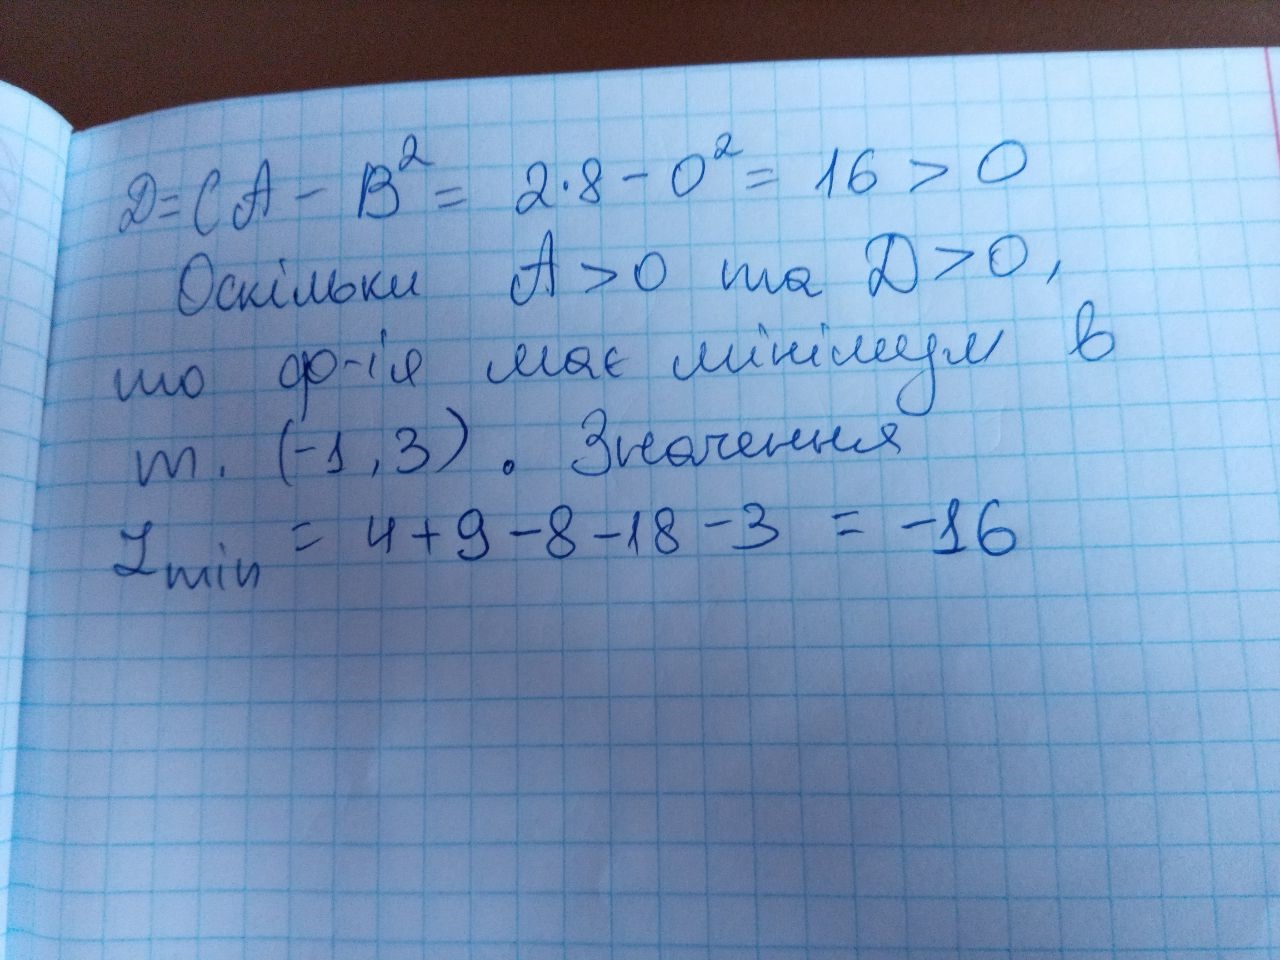 D=CA-B²= 2·8-0²= 16 > 0
Оскільки A>0 та D>0,
то ф-ія має мінімум в
т. (-1,3). Значення
Z min = 4+9-8-18-3 = -16